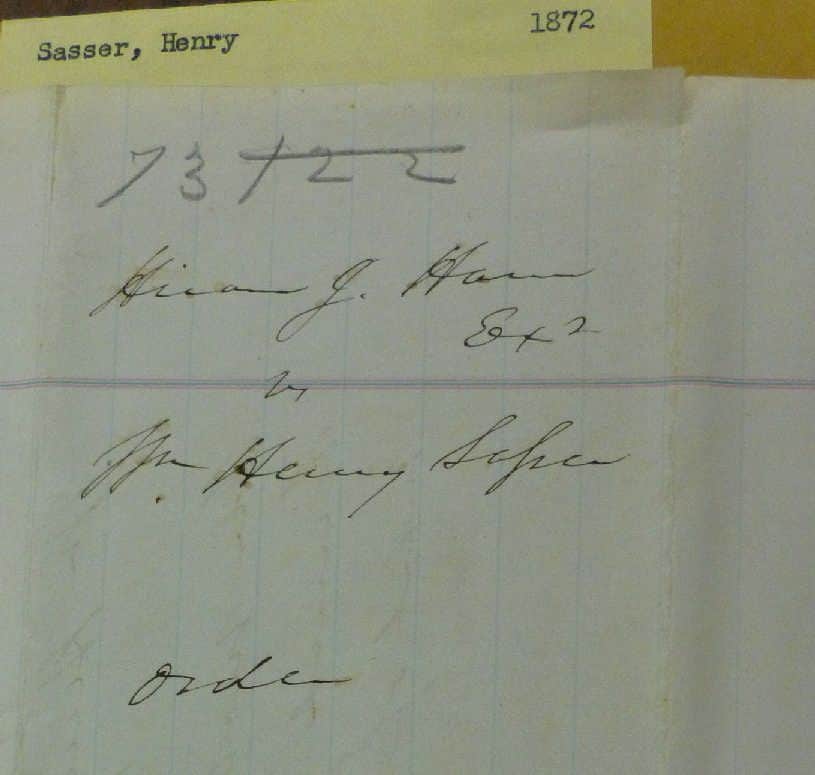 Sasser, Henry 1872
73 122
Hiram J. Ham
Exr
vs
Wm Henry Sasser
Order